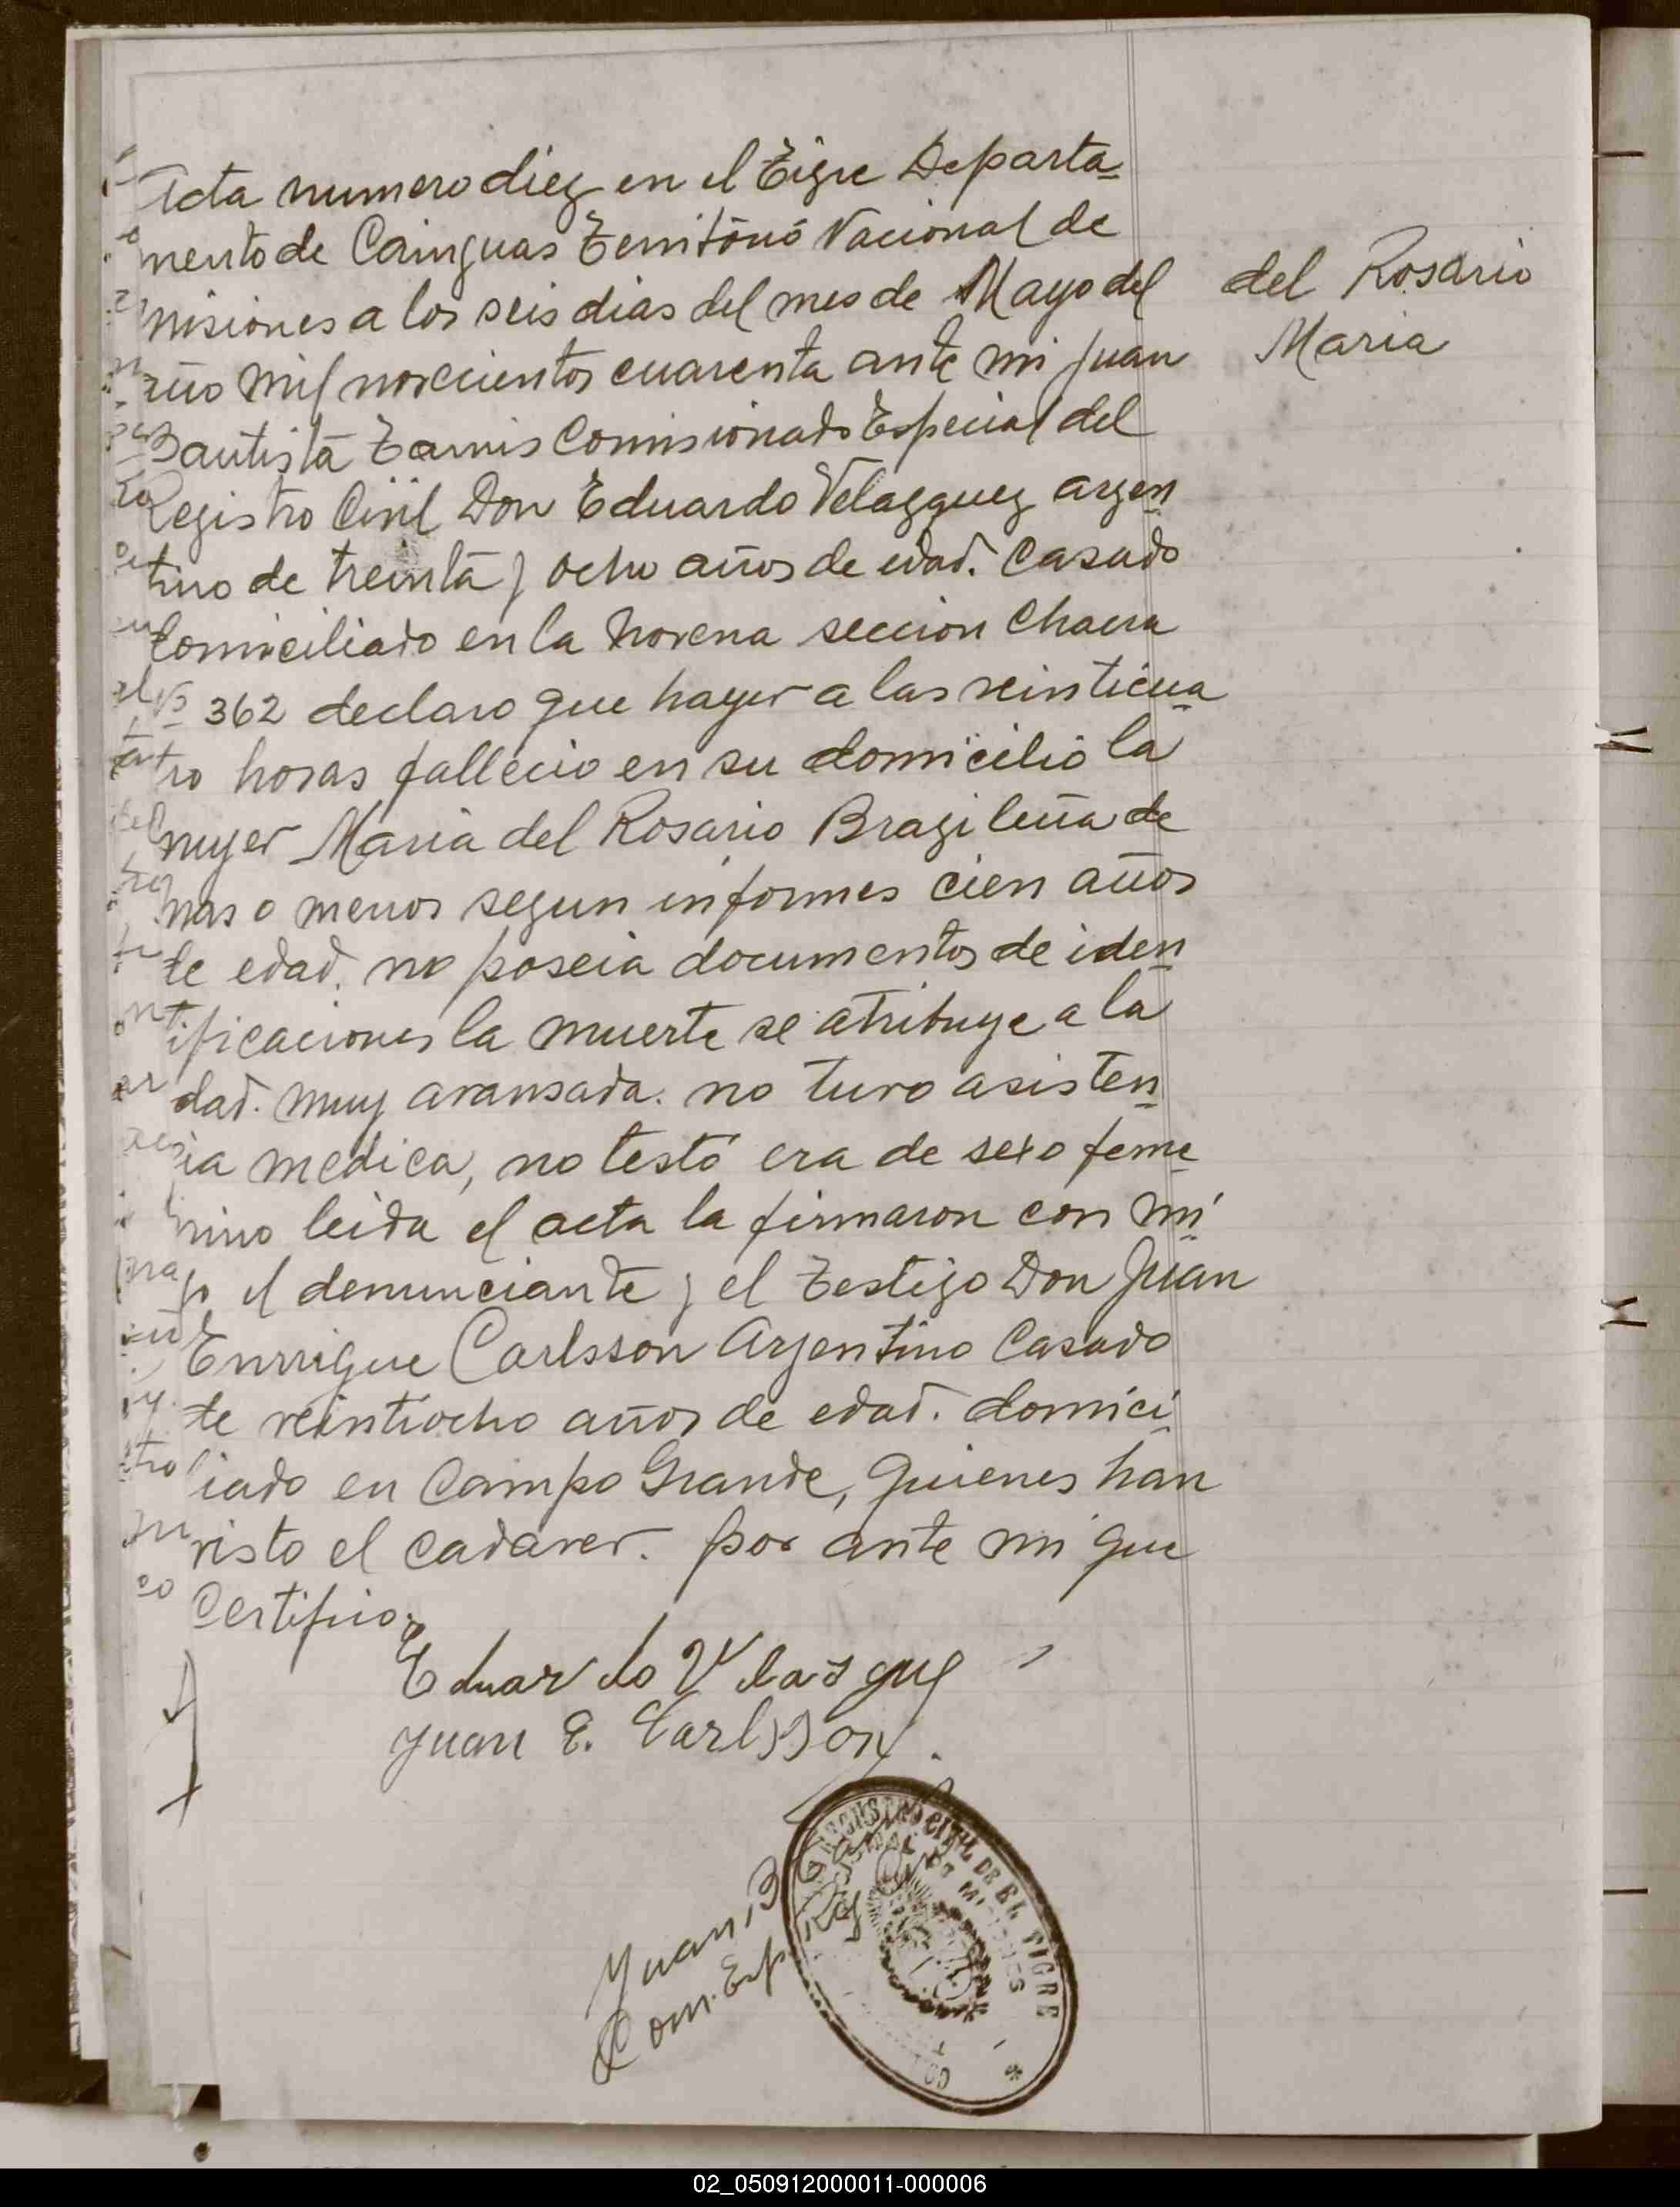 Acta numero diez en el Tigre Departa-
mento de Cainguas Territorio Nacional de
misiones a los seis dias del mes de Mayo del
año mil novecientos cuarenta ante mi Juan
Bautista Comisionado Especial del
Registro Civil Don Eduardo Velazquez argen-
tino de treinta y ocho años de edad. Casado
domiciliado en la novena seccion Chacra
Nº 362 declaro que hayer a las veinticua-
tro horas fallecio en su domicilio la
mujer Maria del Rosario Brazileña de
mas o menos segun informes cien años
de edad. no poseia documentos de iden-
tificaciones la muerte se atribuye a la
dad. muy avansada. no tuvo asisten-
cia medica, no testó era de sexo feme-
nino leida el acta la firmaron con mi-
go el denunciante y el Testigo Don Juan
Enrrigue Carlsson Argentino Casado
de veintiocho años de edad. domici-
liado en Campo Grande, quienes han
visto el cadaver. por ante mi que
Certifico.
del Rosario
Maria
Eduardo Velasque
Juan E. Carlsson.
Juan B
Com. Esp. Reg. Civil
REGISTRO CIVIL DE EL TIGRE
MISIONES
02_050912000011-000006